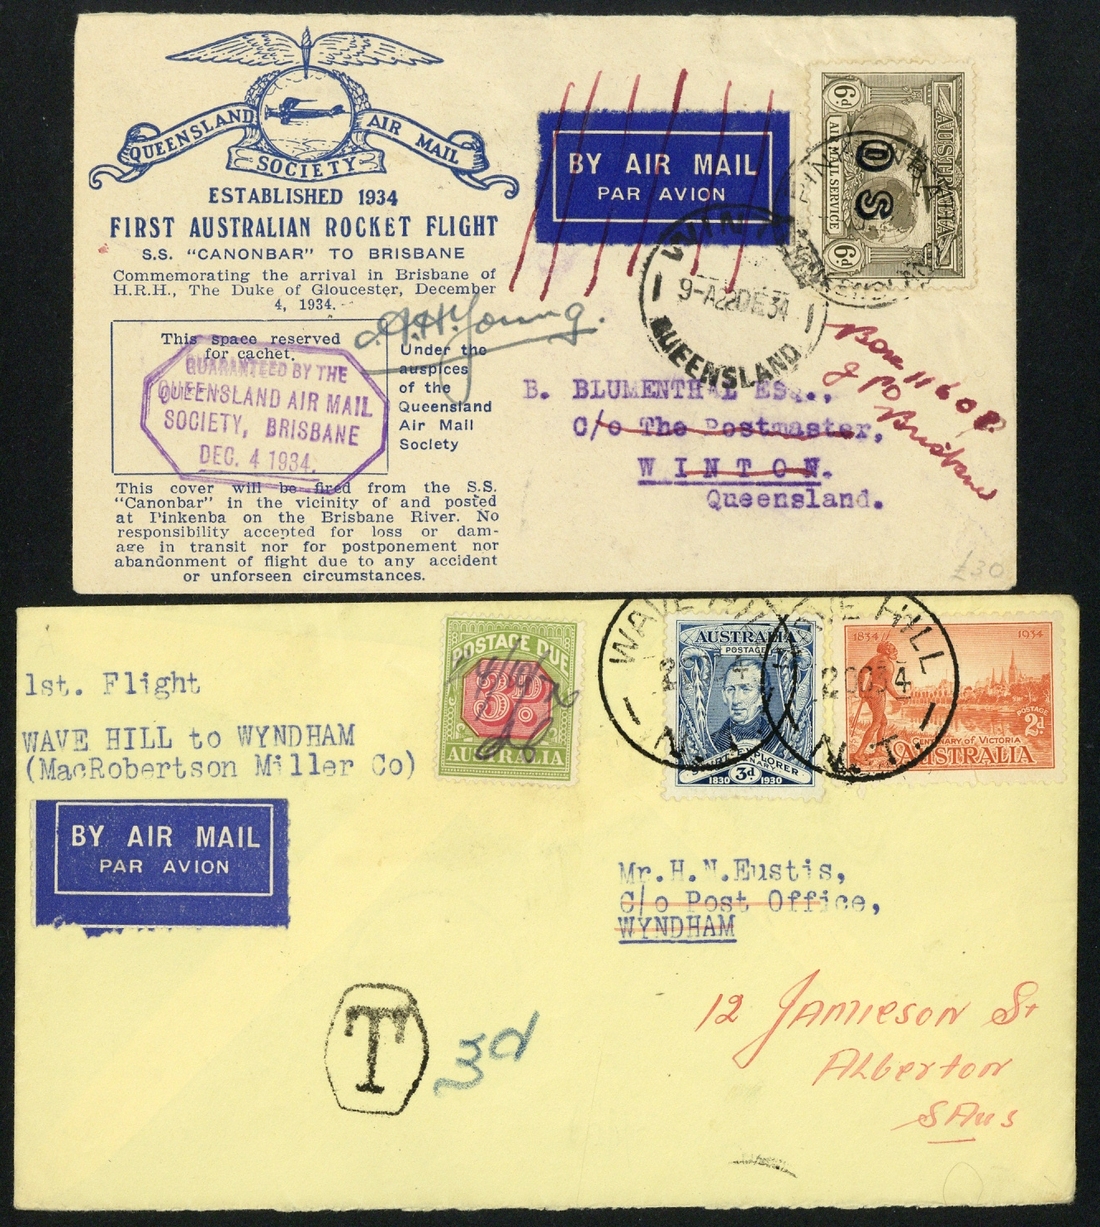 QUEENSLAND AIR MAIL
SOCIETY
ESTABLISHED 1934
FIRST AUSTRALIAN ROCKET FLIGHT
S.S. "CANONBAR" TO BRISBANE
Commemorating the arrival in Brisbane of
H.R.H., The Duke of Gloucester, December
4, 1934.
This space reserved
for cachet.
GUARANTEED BY THE
QUEENSLAND AIR MAIL
SOCIETY, BRISBANE
DEC. 4 1934.
Young.
Under the
auspices
of the
Queensland
Air Mail
Society
This cover will be fired from the S.S.
"Canonbar" in the vicinity of and posted
at Pinkenba on the Brisbane River. No
responsibility accepted for loss or dam-
age in transit nor for postponement nor
abandonment of flight due to any accident
or unforseen circumstances.
BY AIR MAIL
PAR AVION
AUSTRALIA
AIR MAIL SERVICE
6d 6d
OS
PINKENBA
QUEENSLAND
9-A 22 DE 34
QUEENSLAND
B. BLUMENTHAL Esq.,
C/o The Postmaster,
WINTON.
Queensland.
Box 1160P.
GPO
Brisbane
£30
1st. Flight
WAVE HILL to WYNDHAM
(MacRobertson Miller Co)
BY AIR MAIL
PAR AVION
POSTAGE DUE
3D.
AUSTRALIA
AUSTRALIA
POSTAGE
EXPLORER
3d
1830 1930
WAVE HILL
N.T.
WAVE HILL
2 OC 34
N.T.
1834 1934
POSTAGE
2d
CENTENARY OF VICTORIA
AUSTRALIA
Mr.H.N.Eustis,
C/o Post Office,
WYNDHAM
12 Jamieson St
Alberton
S Aus
T
3d